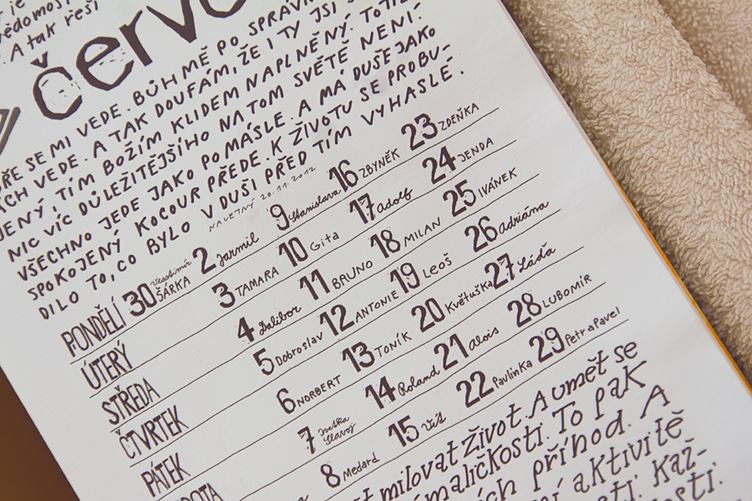 je
vědomost
. A tak řeší
červe
ŘE SE MI VEDE. BŮH MĚ PO SPRÁV
ÝCH VEDE. A TAK DOUFÁM, ŽE I TY JSI
JENÝ, TÍM BOŽÍM KLIDEM NAPLNĚNÝ. TOTIŽ
NIC VÍC DŮLEŽITĚJŠÍHO NA TOM SVĚTĚ NENÍ.
VŠECHNO JEDE JAKO PO MÁSLE. A MÁ DUŠE JAKO
SPOKOJENÝ KOCOUR PŘEDE. K ŽIVOTU SE PROBU-
DILO TO, CO BYLO V DUŠI PŘED TÍM VYHASLÉ.
NA LETNÝ 20.11.2012
PONDĚLÍ 30 ŠÁRKA 2 Jarmil 9 Stanislava 16 ZBYNĚK 23 ZDEŇKA
ÚTERÝ 3 TAMARA 10 Gita 17 Adolf 24 JENDA
STŘEDA 4 Dalibor 11 BRUNO 18 MILAN 25 IVÁNEK
ČTVRTEK 5 Dobroslav 12 ANTONIE 19 LEOŠ 26 Adriána
PÁTEK 6 NORBERT 13 TONÍK 20 Květuška 27 Láďa
BOTA 7 Slávoj 14 Roland 21 Alois 28 LUBOMÍR
8 Medard 15 Vít 22 Pavlínka 29 Petr a Pavel
t milovat život. A umět se
maličkosti. To pak
ch příhod. A
í aktivitě
osti. Kaž-
sti.